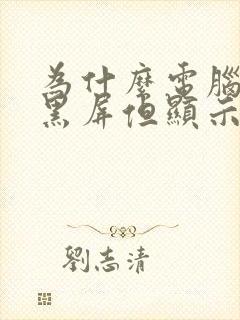 為什麼電腦
黑屏但顯示
劉志清